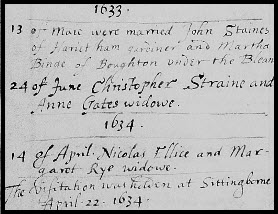 1633.
13 of Maie were married John Staines
of Hariet ham gardiner and Martha
Binge of Boughton under the Blean
24 of June Christopher Straine and
Anne Gates widowe.
1634.
14 of April. Nicolas Ellice and Mar-
garet Rye widowe.
The visitation was holden at Sittingborne
April 22. 1634.